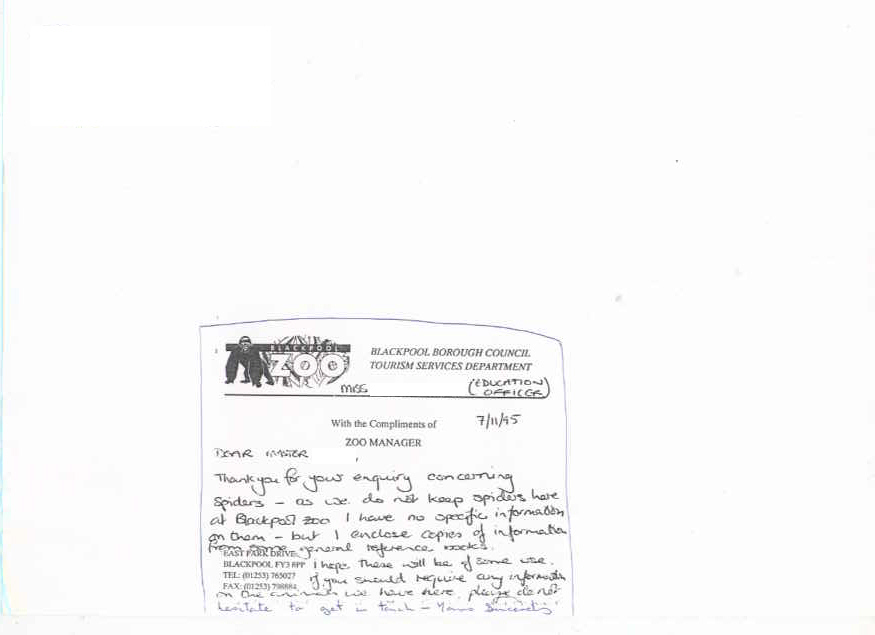 BLACKPOOL
ZOO
BLACKPOOL BOROUGH COUNCIL
TOURISM SERVICES DEPARTMENT
MISS
(EDUCATION
OFFICER)
With the Compliments of
7/11/95
ZOO MANAGER
DEAR MISTER
Thankyou for your enquiry concerning
Spiders – as we do not keep spiders here
at Blackpool Zoo I have no specific information
on them – but I enclose copies of information
from some general reference books.
EAST PARK DRIVE,
BLACKPOOL FY3 8PP I hope these will be of some use.
TEL: (01253) 765027 If you should require any information
FAX: (01253) 798884
on the animals we have here, please do not
hesitate to get in touch – Yours Sincerely